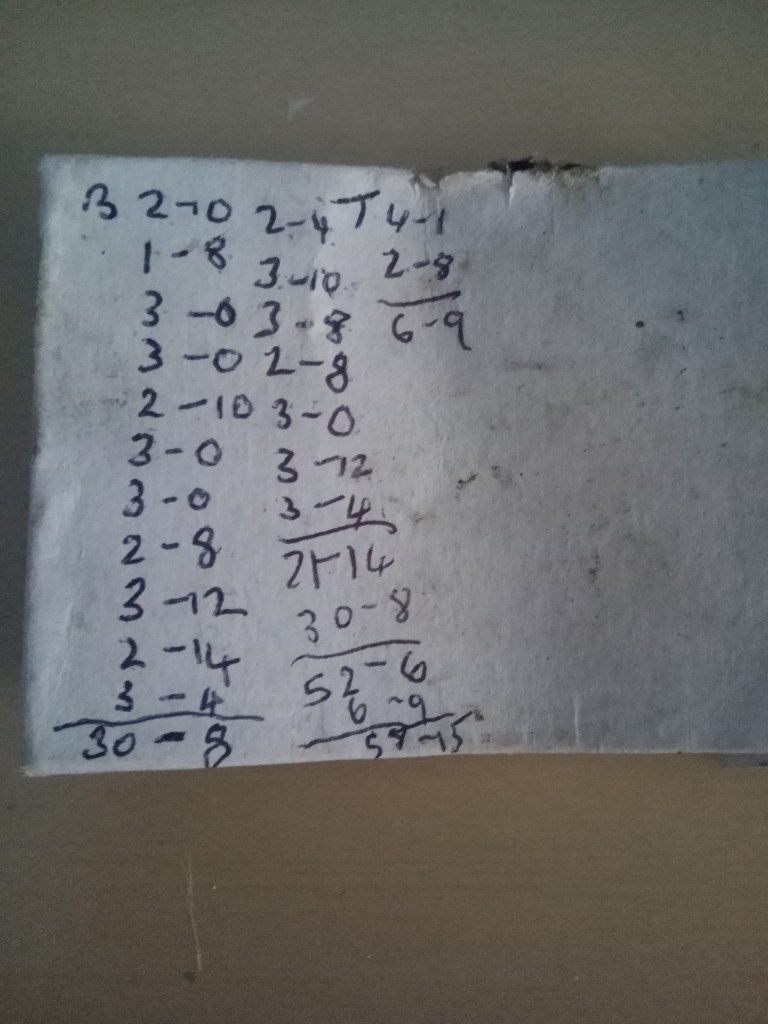 B 2-0
1-8
3-0
3-0
2-10
3-0
3-0
2-8
3-12
2-14
3-4
30-8
2-4
3-10
3-8
2-8
3-0
3-12
3-4
21-14
30-8
52-6
6-9
58-15
T 4-1
2-8
6-9